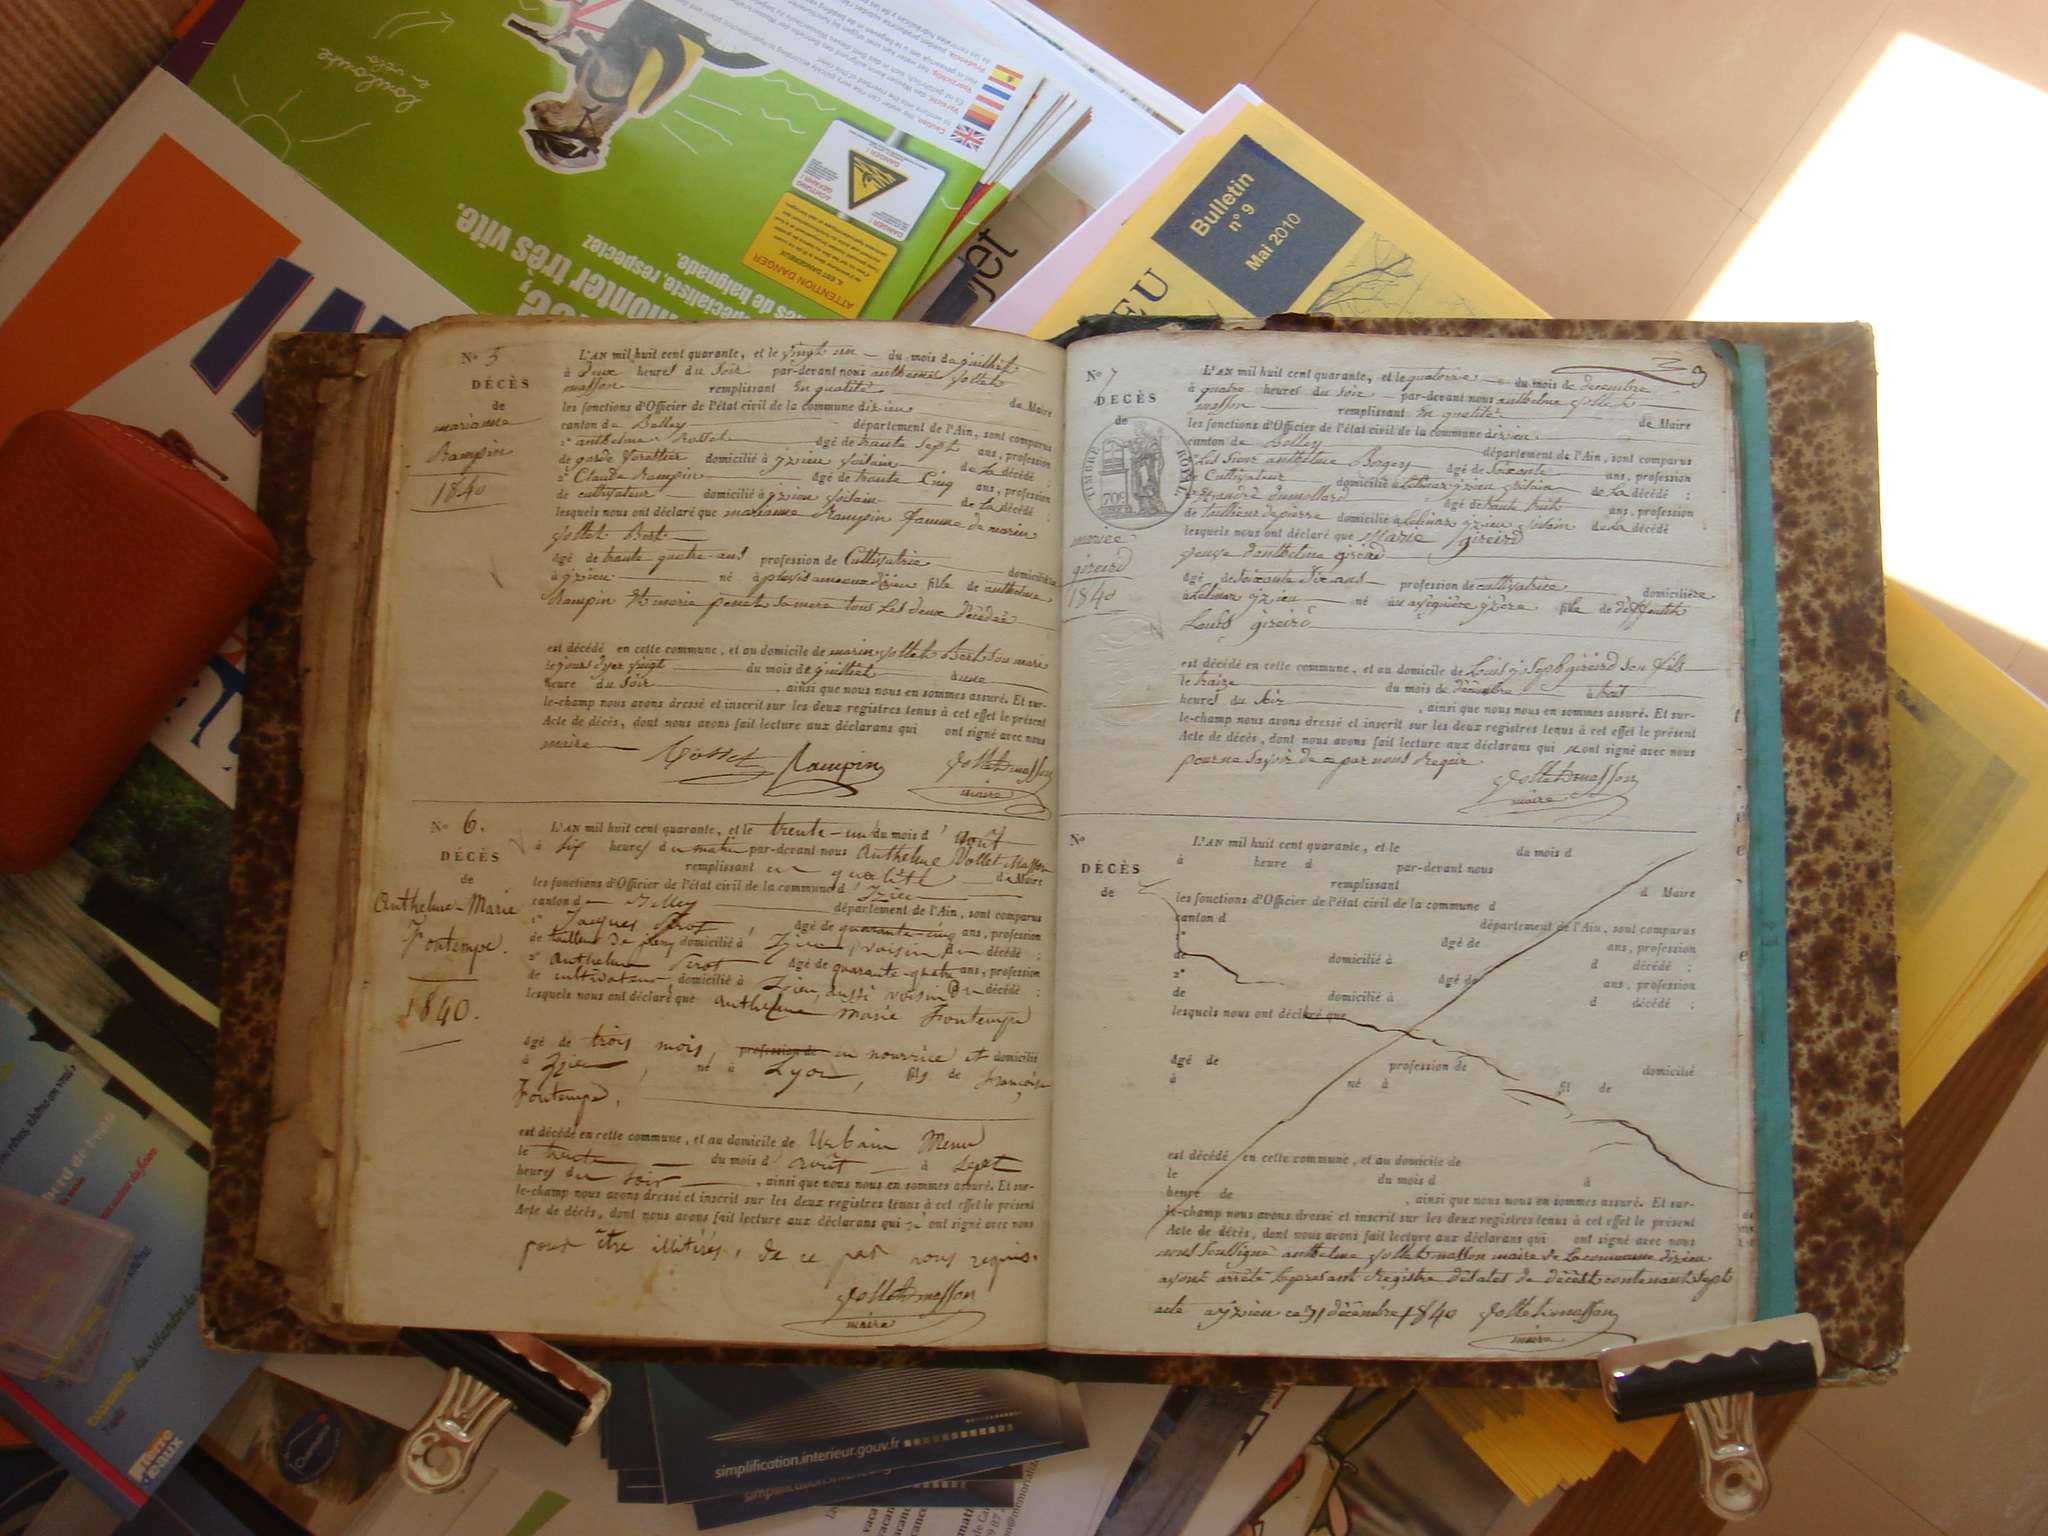 N° 5
DÉCÈS
de
marianne
Rampin
1840
L'AN mil huit cent quarante, et le vingt un du mois de juillet
à deux heures du soir par-devant nous anthelme Vollet
masson remplissant en qualité de Maire
les fonctions d'Officier de l'état civil de la commune dizieu
canton de Belley département de l'Ain, sont comparus
1° anthelme Rosset âgé de trante sept ans, profession
de garde forettier domicilié à yzieu voisain de la décédé ;
2° Claude Rampin âgé de trante Cinq ans, profession
de cultivateur domicilié à yzieu voisain de la décédé ;
lesquels nous ont déclaré que marianne Rampin famme de marin
Vollet Bert
âgé de trante quatre ans profession de Cultivatrie domiciliée
à yzieu né à fille de anthelme
Rampin Et marie penet sa mere tous Les deux Décédés
est décédé en cette commune, et au domicile de marin Vollet Bert son mari
le jours dyer vingt du mois de juillet à une
heure du soir , ainsi que nous nous en sommes assuré. Et sur-
le-champ nous avons dressé et inscrit sur les deux registres tenus à cet effet le présent
Acte de décès, dont nous avons fait lecture aux déclarans qui ont signé avec nous
maire
Rosset Rampin Vollet masson
maire
N° 6.
DÉCÈS
de
Anthelme-Marie
Fontempe.
1840.
L'AN mil huit cent quarante, et le trente-un du mois d'Août
à six heures du matin par-devant nous Anthelme Vollet Masson
remplissant en qualité de Maire
les fonctions d'Officier de l'état civil de la commune d'Izieu
canton de Belley département de l'Ain, sont comparus
1° Jacques Perot âgé de quarante-cinq ans, profession
de tailleur de pierre domicilié à Izieu, voisin du décédé ;
2° Anthelme Perot âgé de quarante-quatre ans, profession
de cultivateur domicilié à Izieu, aussi voisin du décédé ;
lesquels nous ont déclaré que Anthelme Marie Fontempe
âgé de trois mois, profession de en nourrice et domicilié
à Izieu, né à Lyon, fils de françoise
Fontempe,
est décédé en cette commune, et au domicile de Urbain Menu
le trente du mois d'août à sept
heures du soir , ainsi que nous nous en sommes assuré. Et sur-
le-champ nous avons dressé et inscrit sur les deux registres tenus à cet effet le présent
Acte de décès, dont nous avons fait lecture aux déclarans qui n'ont signé avec nous
pour être illitérés, de ce par nous requis.
Vollet masson
maire
39
N° 7
DÉCÈS
de
TIMBRE ROYAL
70c
mariee
gireird
1840
L'AN mil huit cent quarante, et le quatorze du mois de decembre
à quatre heures du soir par-devant nous anthelme Vollet
masson remplissant en qualité de Maire
les fonctions d'Officier de l'état civil de la commune dizieu
canton de Belley département de l'Ain, sont comparus
1° Les Sieur anthelme Borgey âgé de Soixante ans, profession
de Cultivateur domicilié à Lelinaz yzieu voisain de la décédé ;
2° Et andré dumollard âgé de trante huit ans, profession
de tallieur de pierre domicilié à Lelinaz yzieu voisain de la décédé
lesquels nous ont déclaré que Marie gireird
veuve danthelme gireird
âgé de Soixante Six ans profession de cultivatrice domicilière
à Lelinaz yzieu né fille de déffeunth
Louis gireird
est décédé en cette commune, et au domicile de Louis joseph gireird son fils
le traize du mois de décembre à troit
heures du soir , ainsi que nous nous en sommes assuré. Et sur-
le-champ nous avons dressé et inscrit sur les deux registres tenus à cet effet le présent
Acte de décès, dont nous avons fait lecture aux déclarans qui n'ont signé avec nous
pour ne savoir de ce par nous Requir
Vollet masson
maire
N°
DÉCÈS
de
L'AN mil huit cent quarante, et le du mois d
à heure d par-devant nous
remplissant d Maire
les fonctions d'Officier de l'état civil de la commune d
canton d département de l'Ain, sont comparus
1° âgé de ans, profession
de domicilié à d décédé ;
2° âgé de ans, profession
de domicilié à d décédé ;
lesquels nous ont déclaré que
âgé de profession de domicilié
à né à fil de
est décédé en cette commune, et au domicile de
le du mois d à
heure de , ainsi que nous nous en sommes assuré. Et sur-
le-champ nous avons dressé et inscrit sur les deux registres tenus à cet effet le présent
Acte de décès, dont nous avons fait lecture aux déclarans qui ont signé avec nous
nous soussigné anthelme Vollet masson maire de la commune dizieu
ayont arrêté le present Registre détates de décèst contenant sept
acte a yzieu ce 31 décembre 1840 Vollet masson
maire
Bulletin
n° 9
Mai 2010
EU
jet
monter très vite.
spécialiste, respectez
de baignade.
ATTENTION DANGER
DANGER !
ACHTUNG
GEFAHR !
Prudencia,
Voorzichtig,
Vorsicht,
Caution,
simplification.interieur.gouv.fr
terre
eaux